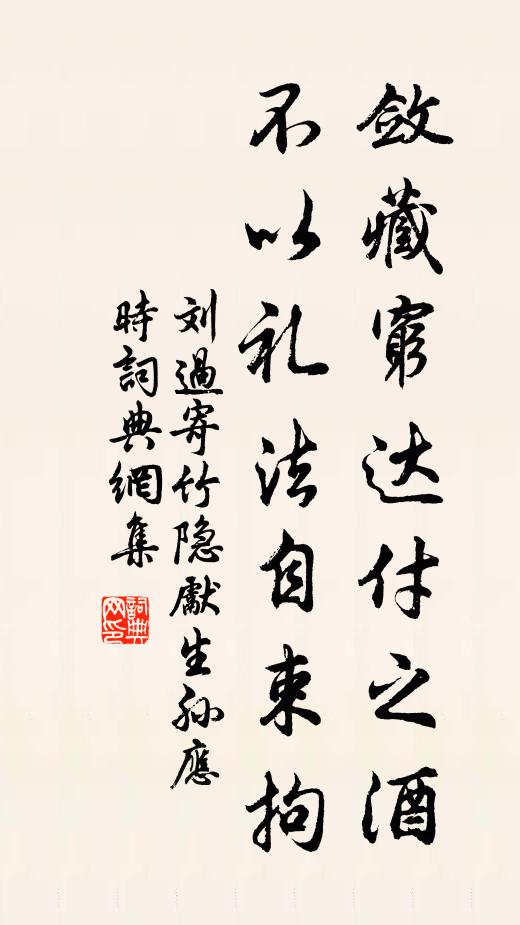 斂藏窮达付之酒
不以礼法自束拘
刘過寄竹隐獻生孙應
時詞典網集
詞典网印